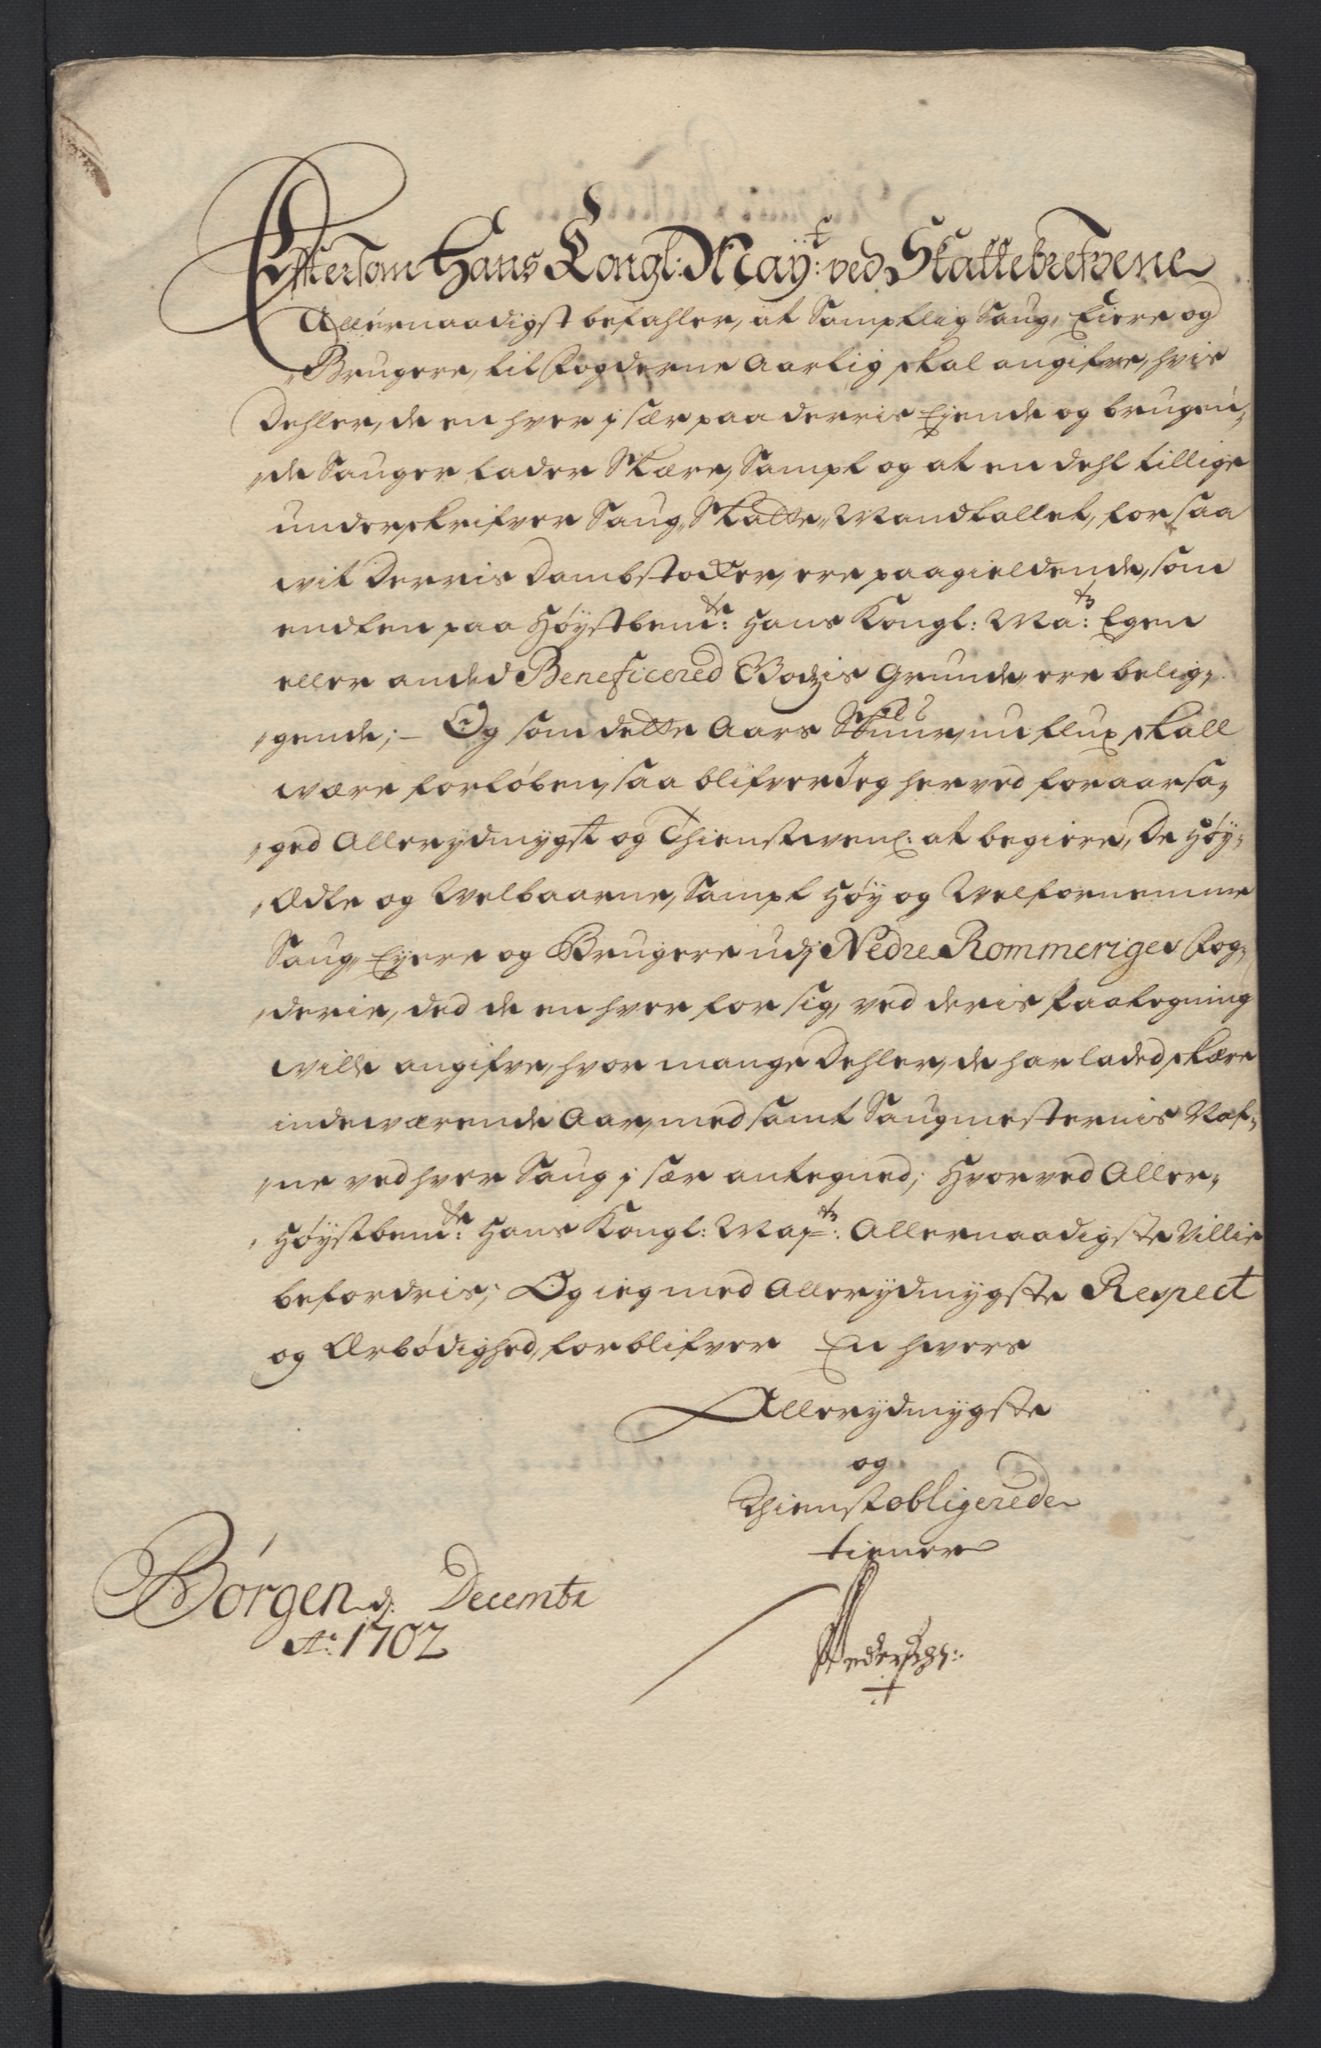 Eftersom Hans Kongl: May:t ved Skattebrefvene
Allernaadigst befahler, at Samptlig Saug, Eiere og
Brugere, til Fogderne Aarlig skal angifve, hvis
Dehler, de en hver j sær paa derris Ejende og brugen,
,,de Sauger lader Skære, Sampt og at en dehl tillige
underskrifver Saug,, Skatte,, Mandtallet, for saa
vit Derris Dambstocker, ere paagieldende, som
endten paa Høystbem:te Hans Kongl: Ma:ts Egen
eller anded Beneficered Godzis Grunde, ere belig,,
,,gende; – Og som dette Aars Skuur, nu flux skall
være forløben, saa blifver Jeg herved foraarsa,
,,ged Allerydmygst og Thienstvenl: at begiere, De Høy,,
,,Ædle og Velbaarne, Sampt Høy og Velfornemme
Saug, Eyere og Brugere udj Nedre Rommeriges Fog,,
,,derie, ded de en hver for sig, ved deris Paategning
ville angifve, hvor mange Dehler, de har laded skære
indeværende Aar, med samt Saugmesternis Naf,,
,,ne ved hver Saug j sær antegned; Hvorved Aller,,
,,Høystbem:te Hans Kongl: May:ts Allernaadigste Villie
befordris; Og ieg med Allerydmygste Respect
og Ærbødighed, forblifver En hvers
Allerydmygste
og
Thienstobligerede
tiener
Børgen d: Decembr
Ao: 1702